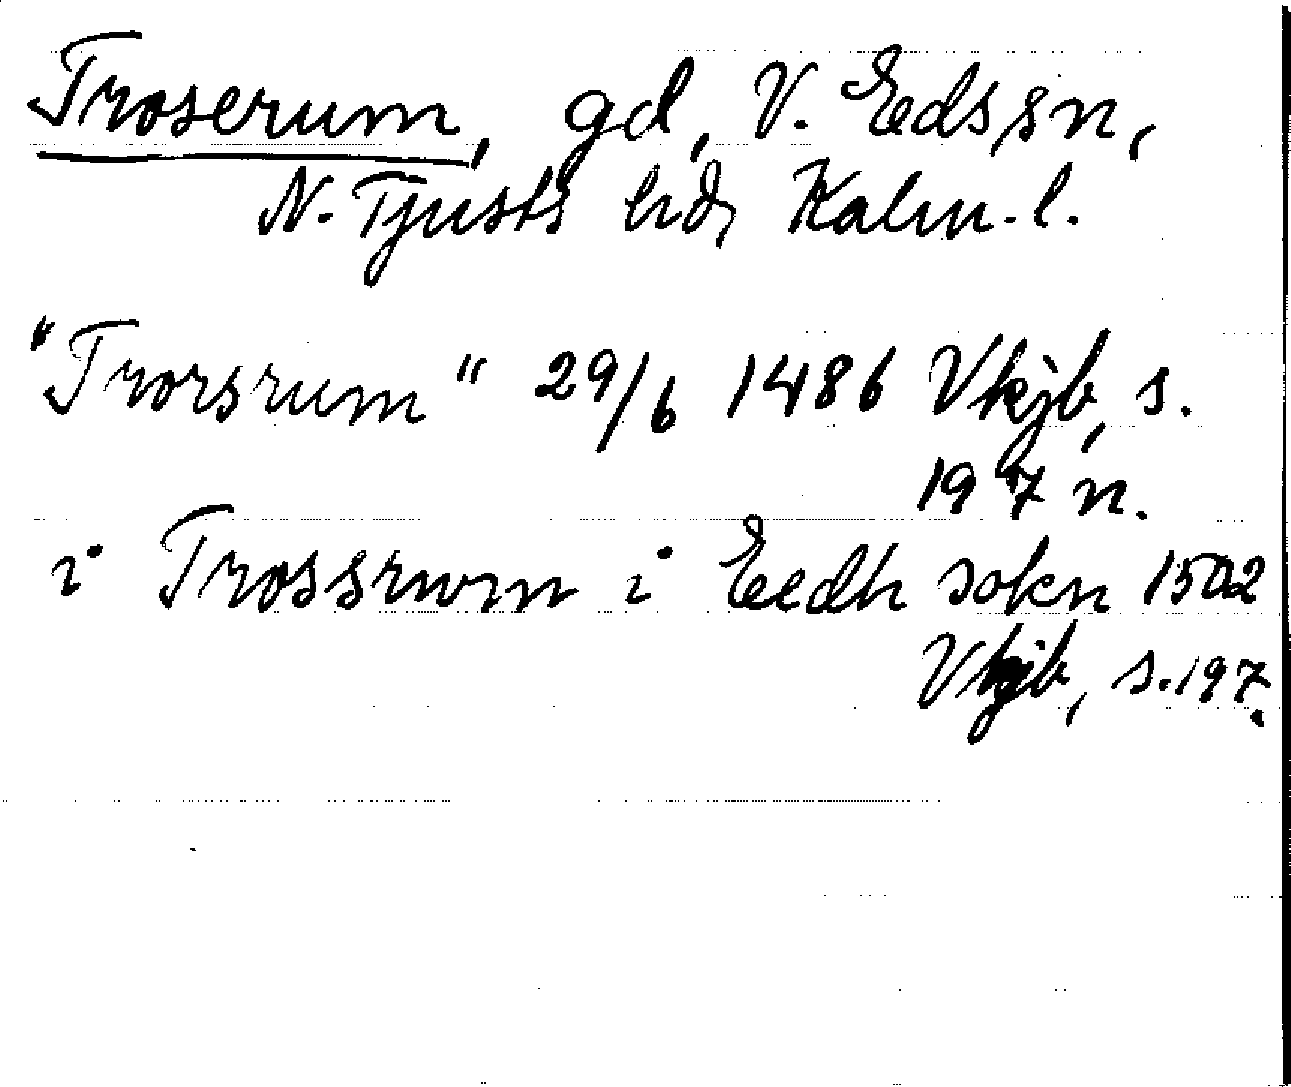 Troserum, gd, V. Eds sn,
N. Tjusts hd, Kalm. l.
"Trorsrum" 29/6 1486 Vkjb, s.
197 n.
i Trossrwm i Eedh sokn 1502
Vkjb, s. 197.